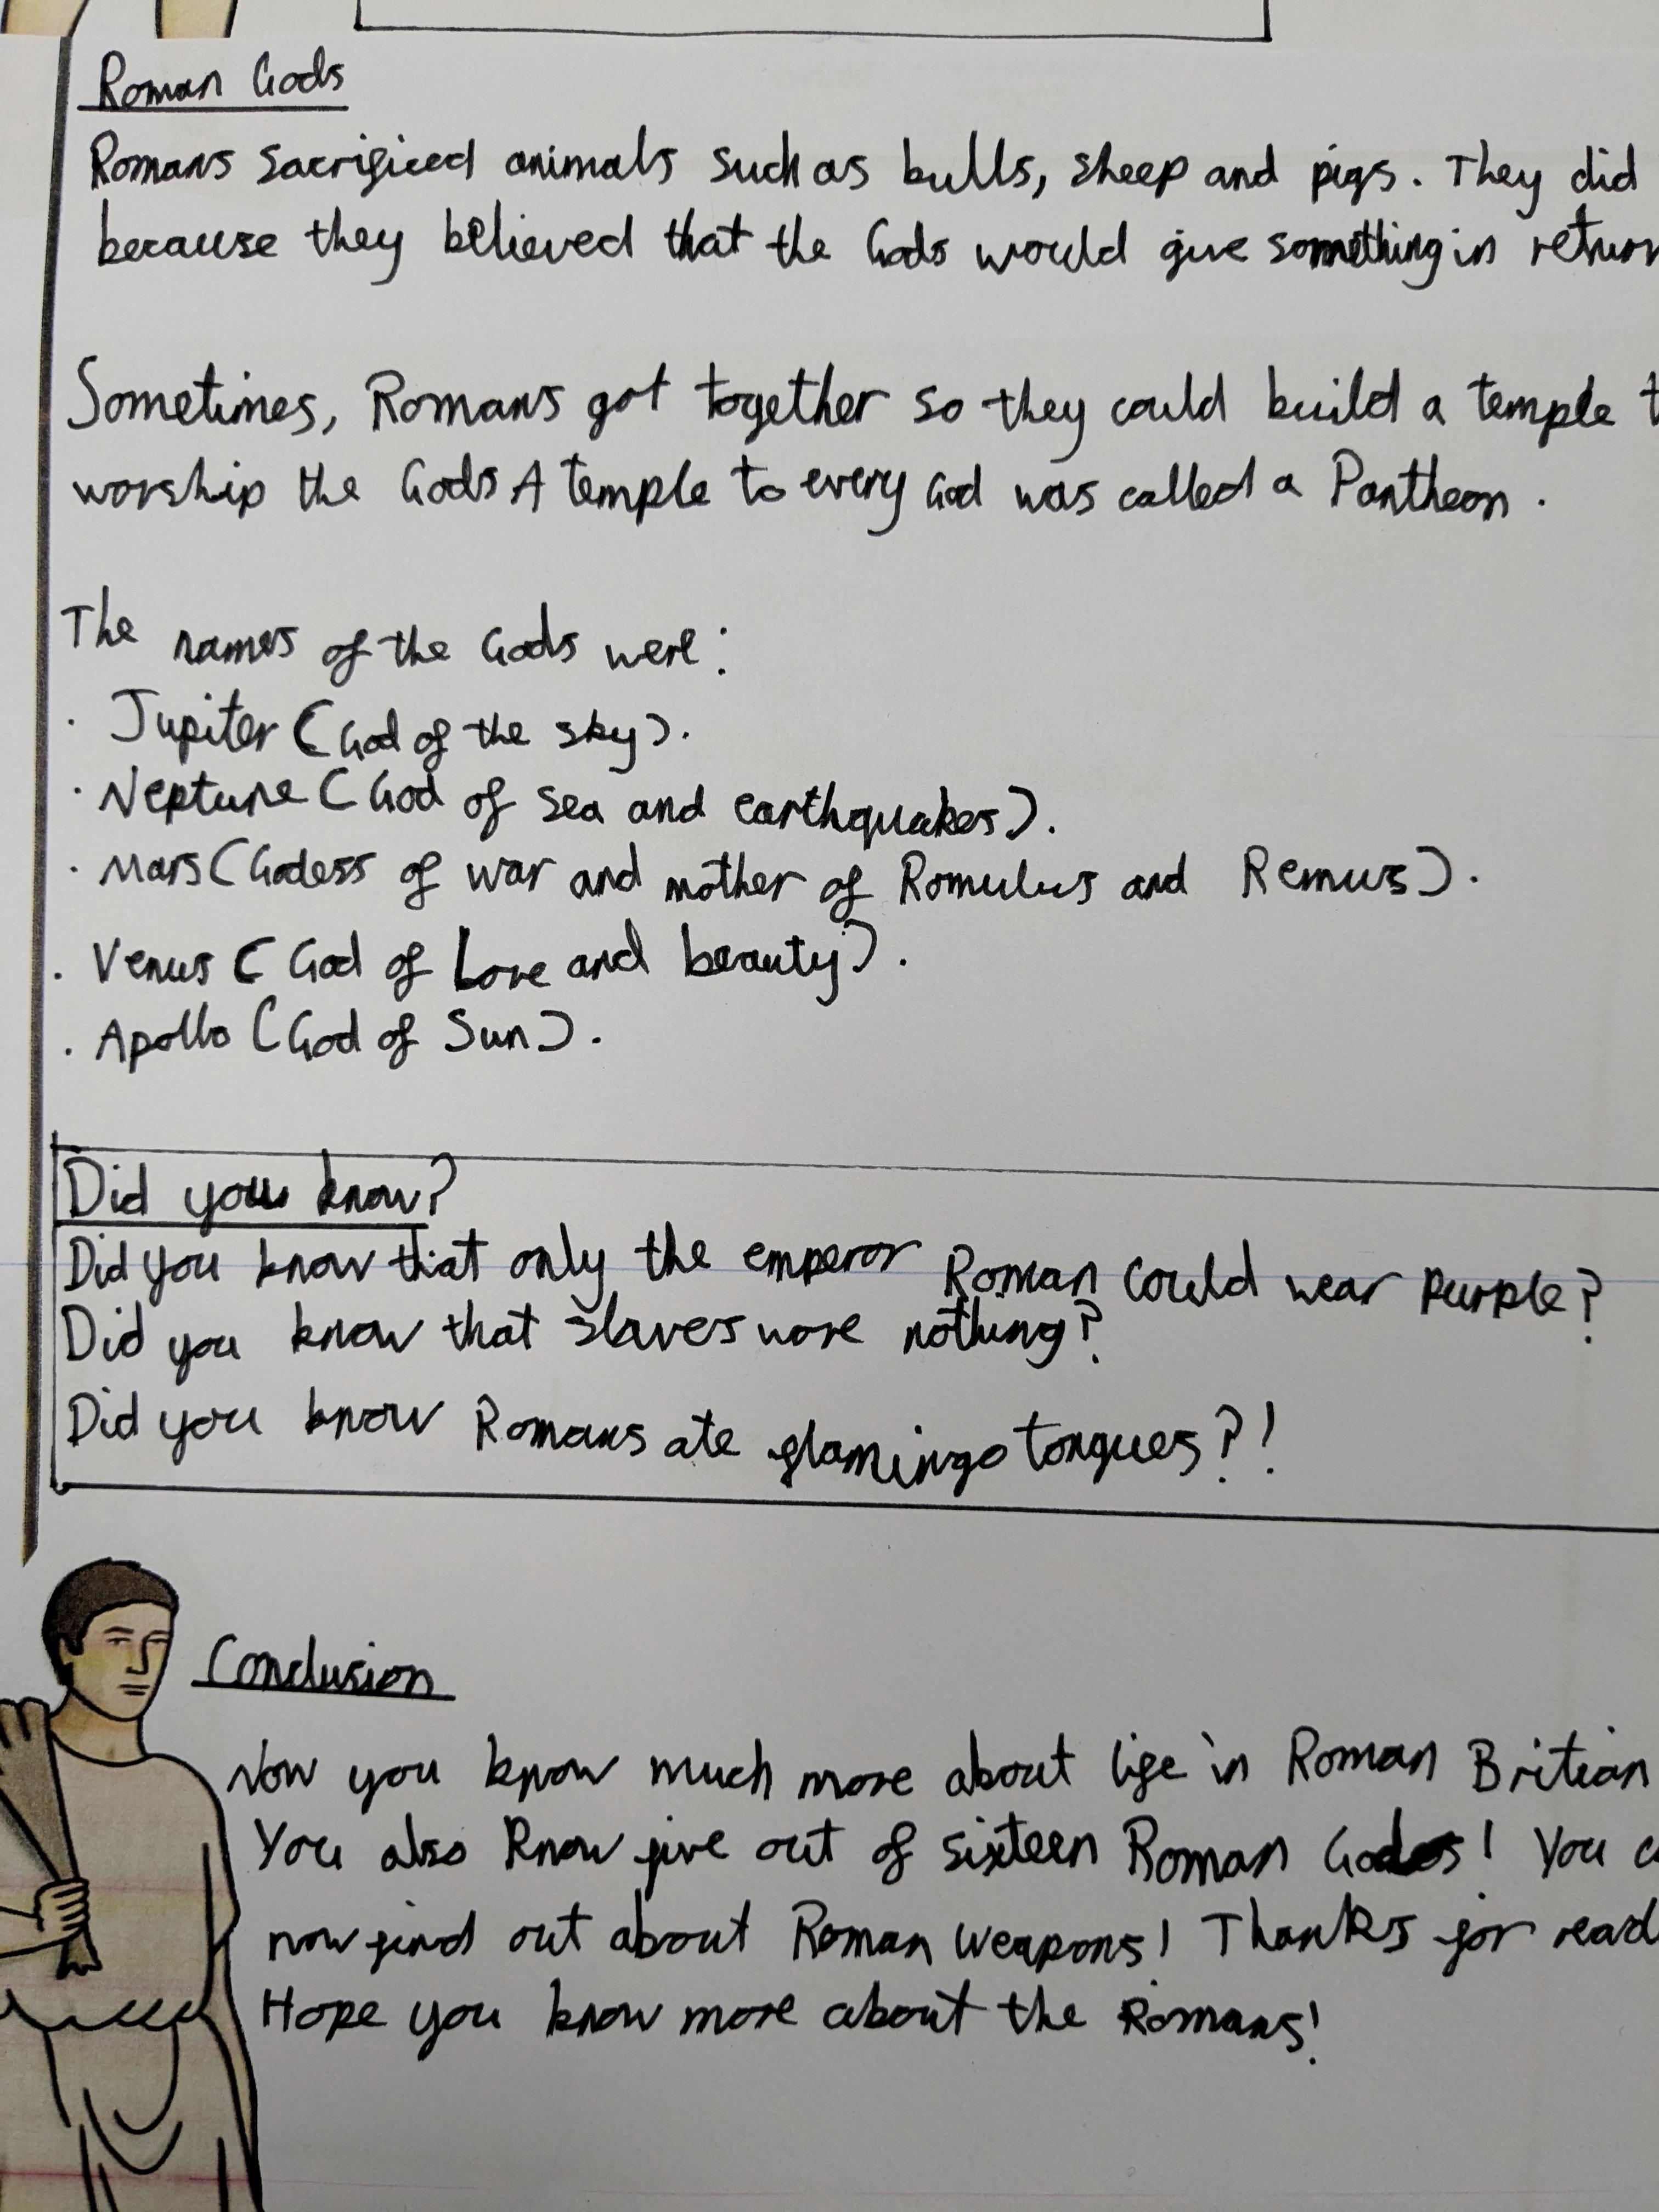 Roman Gods
Romans sacrificed animals such as bulls, sheep and pigs. They did
because they believed that the Gods would give something in return
Sometimes, Romans got together so they could build a temple t
worship the Gods A temple to every God was called a Pantheon.
The names of the Gods were:
· Jupiter (God of the sky).
· Neptune (God of sea and earthquakes).
· Mars (Godess of war and mother of Romulus and Remus).
· Venus (God of Love and beauty).
· Apollo (God of Sun).
Did you know?
Did you know that only the emperor Roman could wear purple?
Did you know that slaves wore nothing?
Did you know Romans ate flamingo tongues?!
Conclusion
Now you know much more about life in Roman Britian
You also know five out of sixteen Roman Gods! You c
now find out about Roman weapons! Thanks for read
Hope you know more about the Romans!